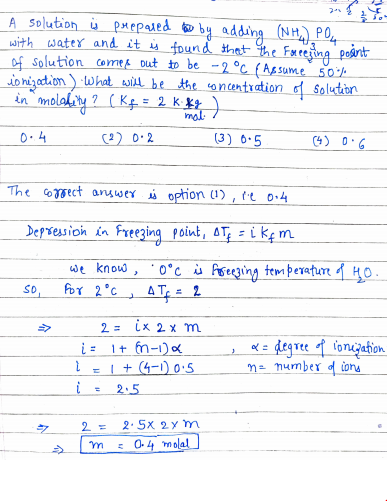 A solution is prepared by adding (NH4)3 PO4
with water and it is found that the Freezing point
of solution comes out to be -2°C (Assume 50%
ionization) What will be the concentration of solution
in molality? (Kf = 2 K.kg/mol.)
0.4 (2) 0.2 (3) 0.5 (4) 0.6
The correct answer is option (1), i.e 0.4
Depression in Freezing point, ΔTf = i Kf m
we know, 0°C is freezing temperature of H2O.
so, For 2°C, ΔTf = 2
⇒ 2 = i x 2 x m
i = 1 + (n-1)α , α = degree of ionization
i = 1 + (4-1) 0.5 n = number of ions
i = 2.5
⇒ 2 = 2.5 x 2 x m
⇒ m = 0.4 molal